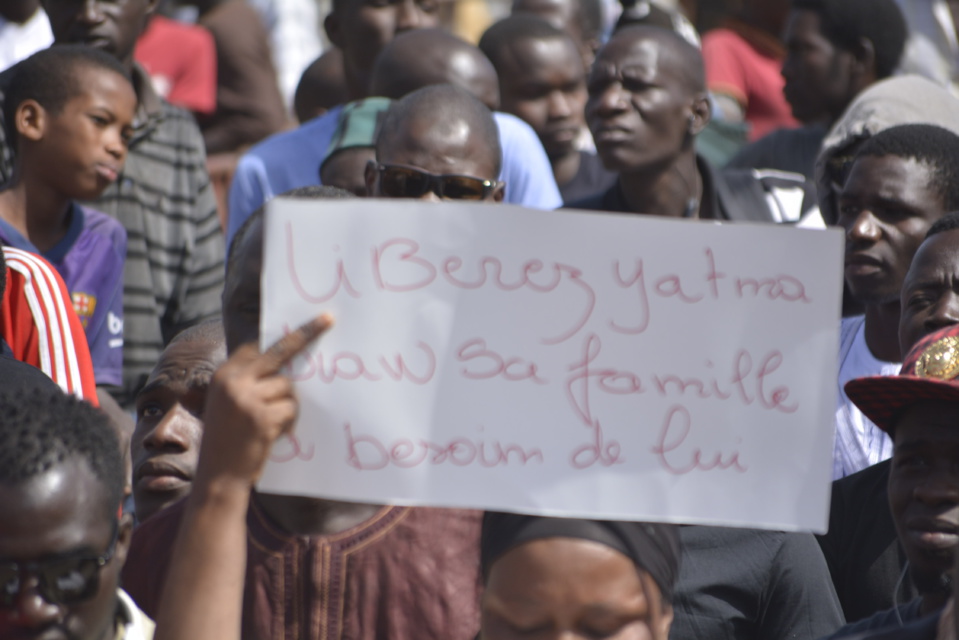 LiBerez yatma
Diaw Sa famille
a besoim de lui